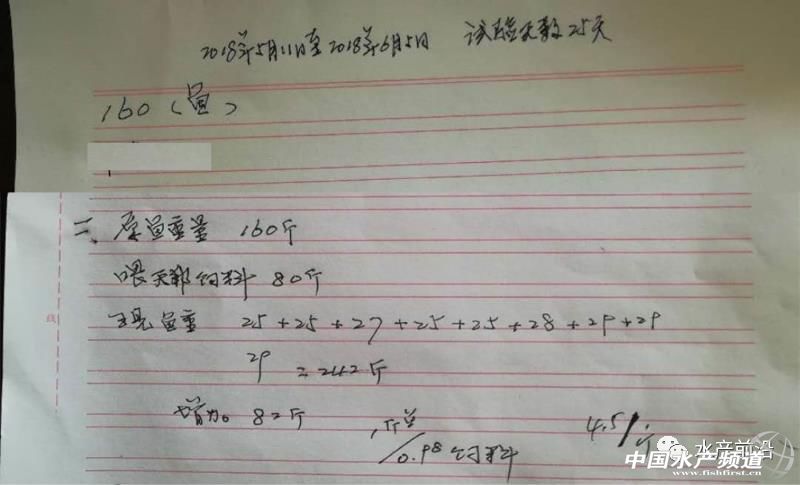 2018年5月11日至2018年6月5日 试验天数25天
160（鱼）
二、原鱼重量 160斤
喂天邦饲料 80斤
现鱼重 25+25+27+25+25+28+29+29
29 =242斤
增加 82斤 1斤鱼/0.98饲料 4.5/斤
水产前沿
中国水产频道
www.fishfirst.cn
线